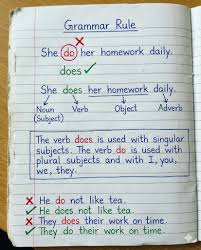 Grammar Rule
She do her homework daily.
does
She does her homework daily.
Noun Verb Object Adverb
(Subject)
The verb does is used with singular
subjects. The verb do is used with
plural subjects and with I, you,
we, they.
He do not like tea.
He does not like tea.
They does their work on time.
They do their work on time.